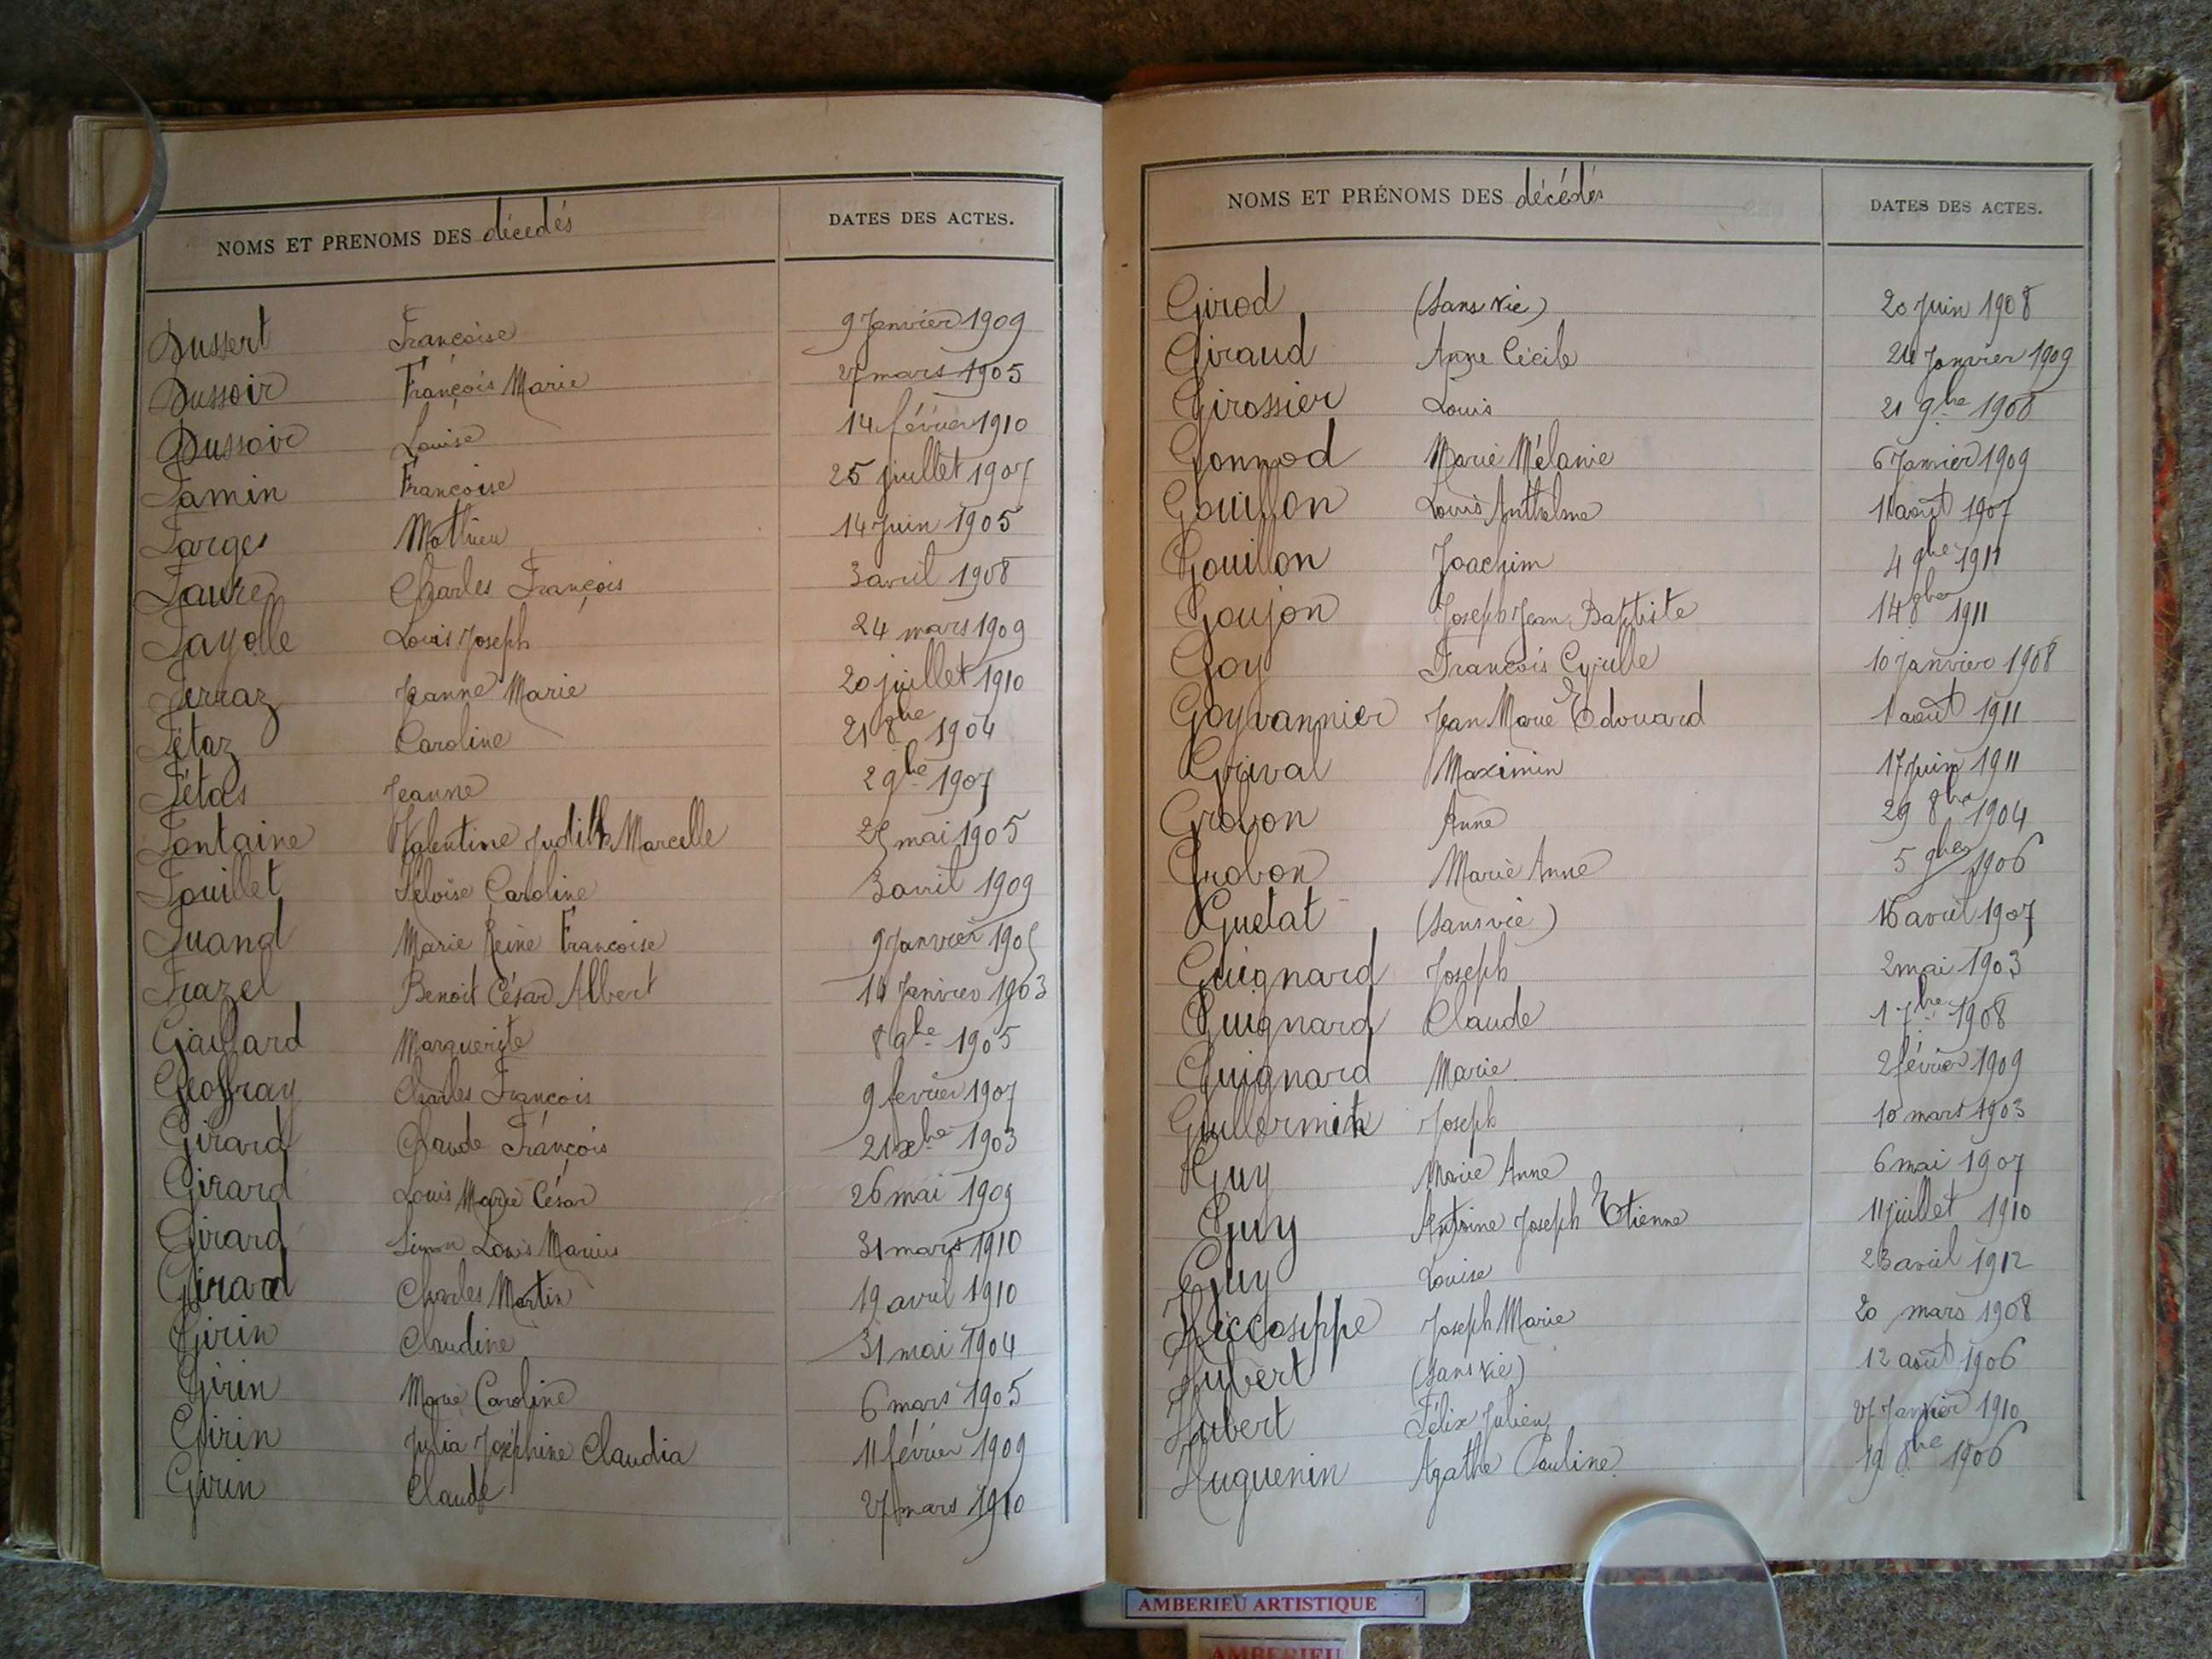 NOMS ET PRENOMS DES décédés DATES DES ACTES.
Dussert Françoise 9 Janvier 1909
Dussoir François Marie 27 mars 1905
Dussoir Louise 14 février 1910
Famin Françoise 25 juillet 1907
Farges Mathieu 14 Juin 1905
Faure Charles François 3 avril 1908
Fayolle Louis Joseph 24 mars 1909
Ferraz Jeanne Marie 20 juillet 1910
Fétaz Caroline 21 8bre 1904
Fétas Jeanne 2 9bre 1907
Fontaine Valentine Judith Marcelle 27 mai 1905
Fouillet Héloïse Caroline 3 avril 1909
Marie Reine Françoise 9 Janvier 1905
Frazel Benoit César Albert 14 Janvier 1903
Gaillard Marguerite 8 9bre 1905
Geoffray Charles François 9 février 1907
Girard Claude François 21 Xbre 1903
Girard Louis Marie César 26 mai 1909
Girard Simon Louis Marius 31 mars 1910
Girard Charles Martin 19 avril 1910
Girin Claudine 31 mai 1904
Girin Marie Caroline 6 mars 1905
Girin Julia Joséphine Claudia 11 février 1909
Girin Claude 27 mars 1910
NOMS ET PRÉNOMS DES décédés DATES DES ACTES.
Girod (Sans vie) 20 Juin 1908
Giraud Anne Cécile Janvier 1909
Girossier Louis 21 9bre 1908
Gonnod Marie Mélanie 6 Janvier 1909
Gouillon Louis Anthelme 11 août 1907
Gouillon Joachim 4 9bre 1911
Goujon Joseph Jean Baptiste 14 8bre 1911
Goy François Cyrille 10 Janvier 1908
Goyvannier Jean Marie Edouard 1 août 1911
Grival Maximin 17 Juin 1911
Grobon Anne 29 8bre 1904
Grobon Marie Anne 5 9bre 1906
Guelat (Sans vie) 16 avril 1907
Guignard Joseph 2 mai 1903
Guignard Claude 1 7bre 1908
Guignard Marie 2 février 1909
Guillermin Joseph 10 mars 1903
Guy Marie Anne 6 mai 1907
Guy Antoine Joseph Etienne 11 juillet 1910
Guy Louise 23 avril 1912
Joseph Marie 20 mars 1908
Hubert (Sans vie) 12 août 1906
Hubert Félix Julien 27 Janvier 1910
Huguenin Agathe Pauline 19 8bre 1906
AMBERIEU ARTISTIQUE
AMBERIEU